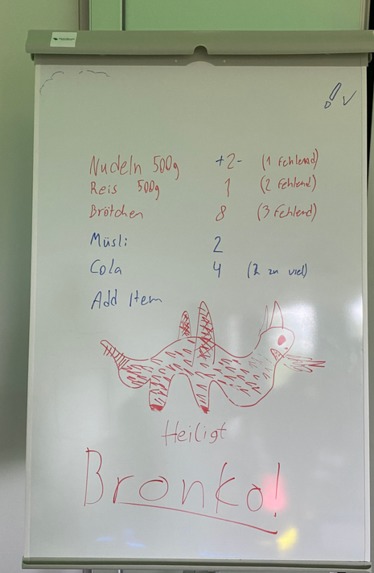 Nudeln 500g +2- (1 fehlend)
Reis 500g 1 (2 fehlend)
Brötchen 8 (3 fehlend)
Müsli 2
Cola 4 (2 zu viel)
Add Item
Heiligt
Bronko!